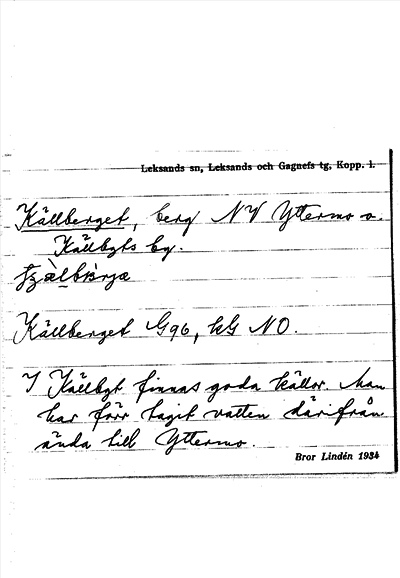 Leksands sn, Leksands och Gagnefs tg, Kopp. l.
Källberget, berg NV Yttermo o.
Källbyts by.
Källberget G96, kG NO.
I Källbyt finnas goda källor. Man
har förr taget vatten därifrån
ända till Yttermo.
Bror Lindén 1934